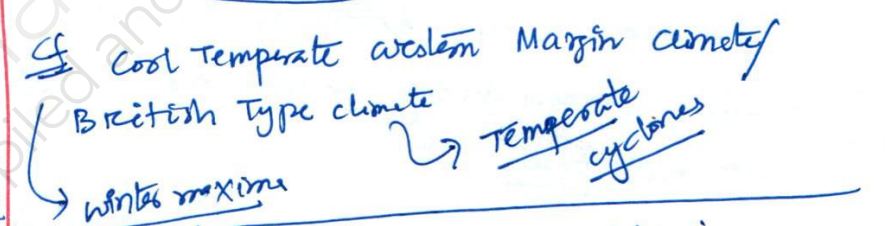 Cf Cool Temperate western Margin climate/
British Type climate
Temperate
cyclones
winter maxima